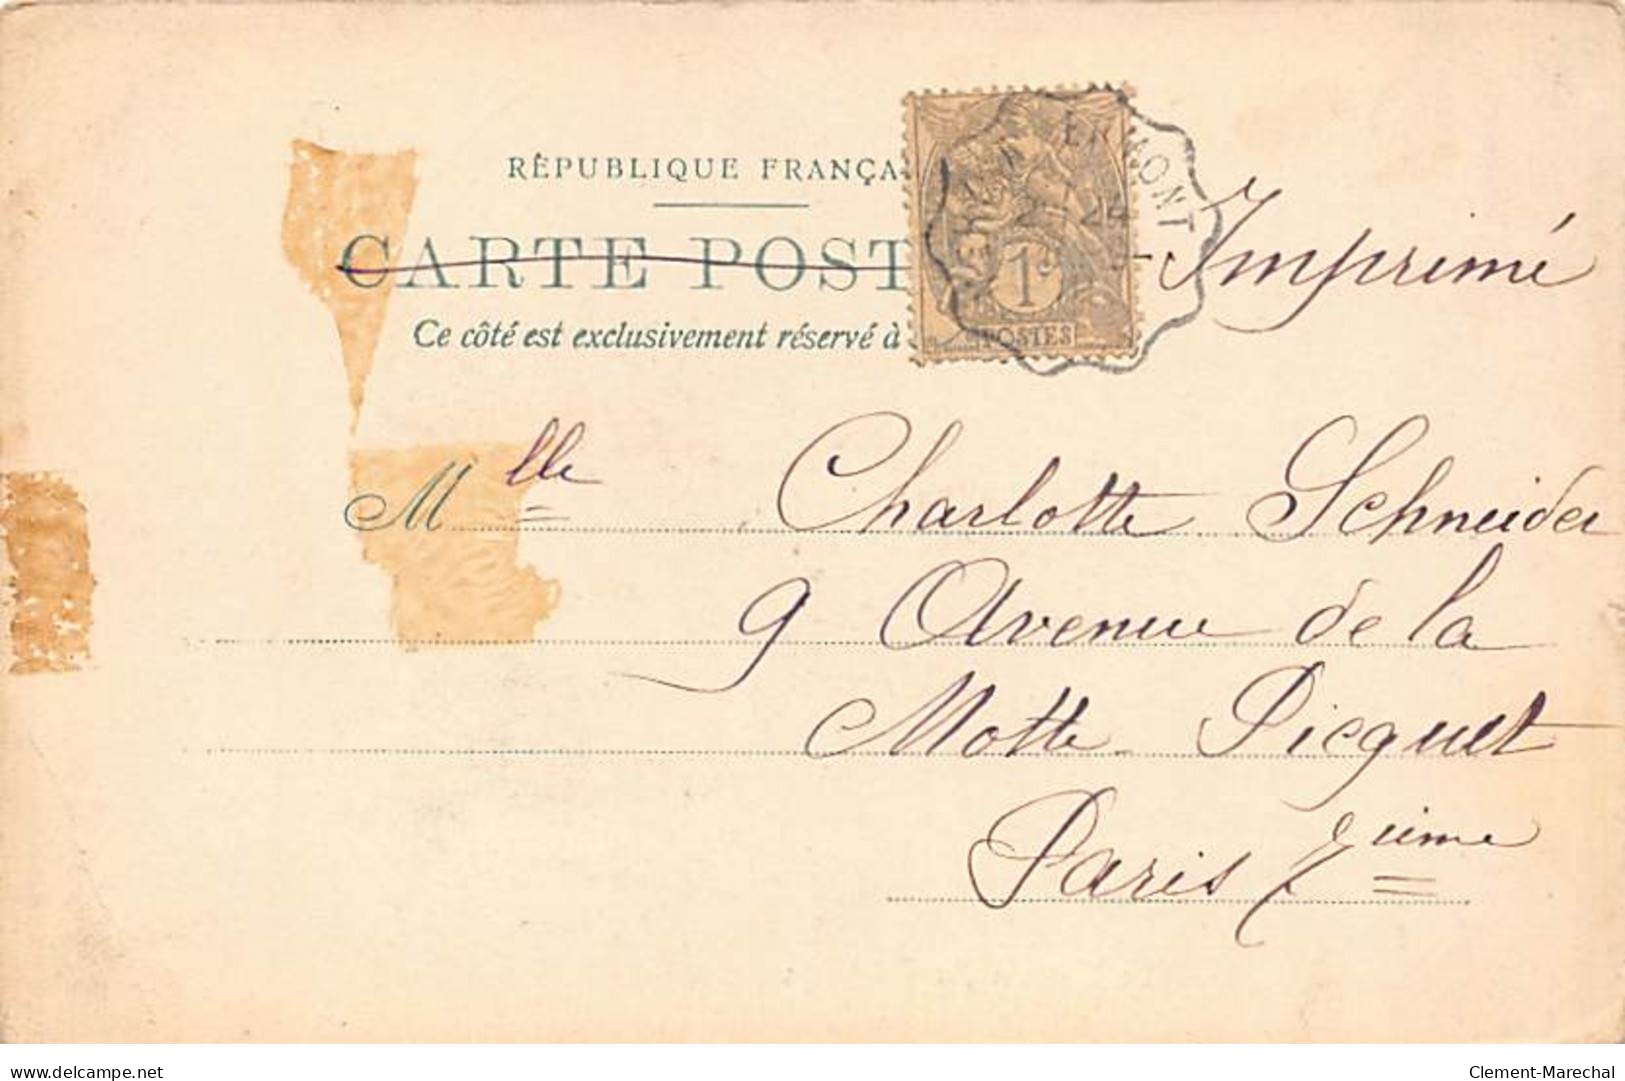 RÉPUBLIQUE FRANÇA
CARTE POST
Imprimé
Ce côté est exclusivement réservé à
ERMONT
24
1c
POSTES
Mlle Charlotte Schneider
9 Avenue de la
Motte-Picquet
Paris 7ième
delcampe.net
Clement-Marechal